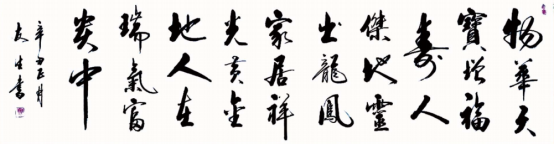 物華天
寶增福
壽人
傑地靈
出龍鳳
家居祥
光黃金
地人在
瑞氣富
貴中
辛丑正月
友生書